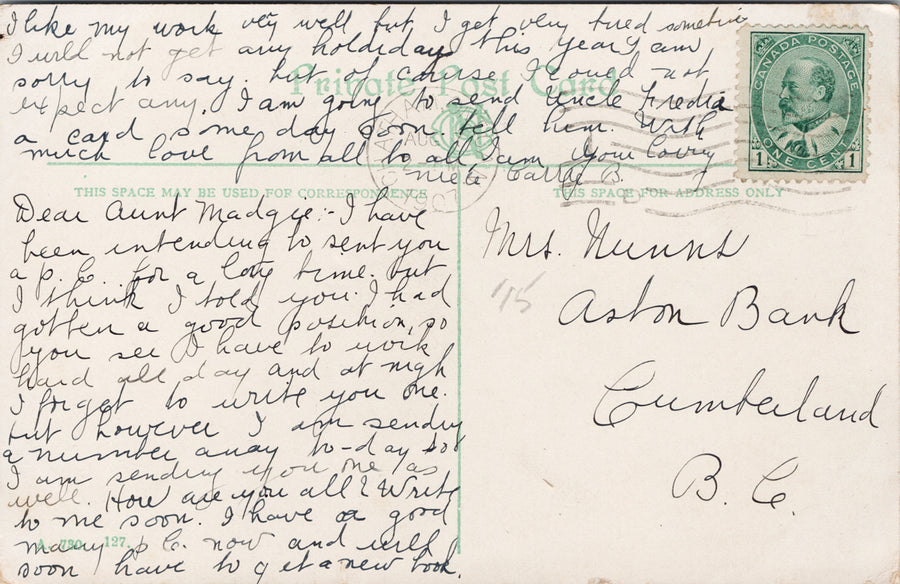 I like my work very well but I get very tired sometim
I will not get any holidays this year I am
sorry to say. but of course I could not
expect any. I am going to send Uncle Fredie
a card some day soon. tell him. With
much love from all to all, I am your loving
niece Carrye B.
Private Post Card
THIS SPACE MAY BE USED FOR CORRESPONDENCE
Dear Aunt Madgie:- I have
been intending to sent you
a p. C. for a long time. but
I think I told you. I had
gotten a good position, so
you see I have to work
hard all day and at nigh
I forget to write you one.
but however I am sending
a number away to-day so
I am sending you one as
well. How are you all? Write
to me soon. I have a good
many p C. now and will
soon have to get a new book.
A. 730 127.
CANADA POSTAGE
ONE CENT
1 1
THIS SPACE FOR ADDRESS ONLY
Mrs. Nunns
'15
Aston Bank
Cumberland
B. C.